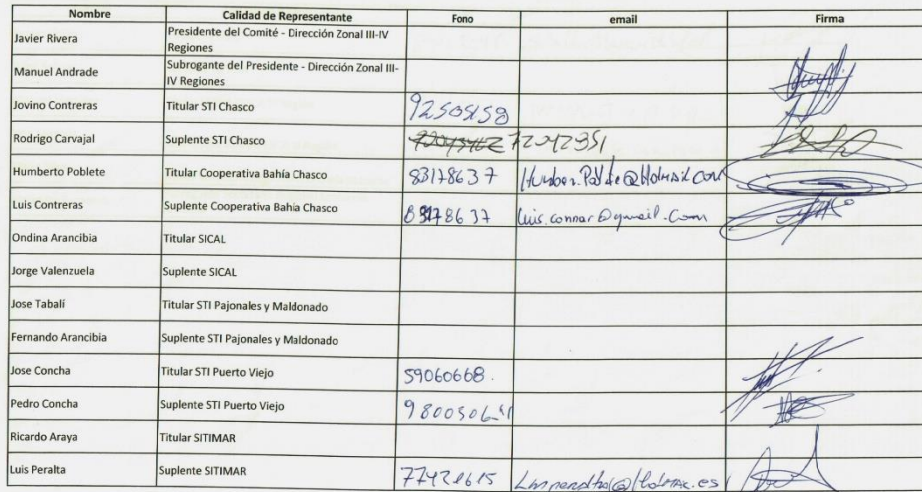 Nombre Calidad de Representante Fono email Firma
Javier Rivera Presidente del Comité - Dirección Zonal III-IV
Regiones
Manuel Andrade Subrogante del Presidente - Dirección Zonal III-
IV Regiones
Jovino Contreras Titular STI Chasco 92505158
Rodrigo Carvajal Suplente STI Chasco
Humberto Poblete Titular Cooperativa Bahía Chasco 83178637
Luis Contreras Suplente Cooperativa Bahía Chasco 83178637 luis.connar@gmail.com
Ondina Arancibia Titular SICAL
Jorge Valenzuela Suplente SICAL
Jose Tabalí Titular STI Pajonales y Maldonado
Fernando Arancibia Suplente STI Pajonales y Maldonado
Jose Concha Titular STI Puerto Viejo 59060668.
Pedro Concha Suplente STI Puerto Viejo
Ricardo Araya Titular SITIMAR
Luis Peralta Suplente SITIMAR 77421615